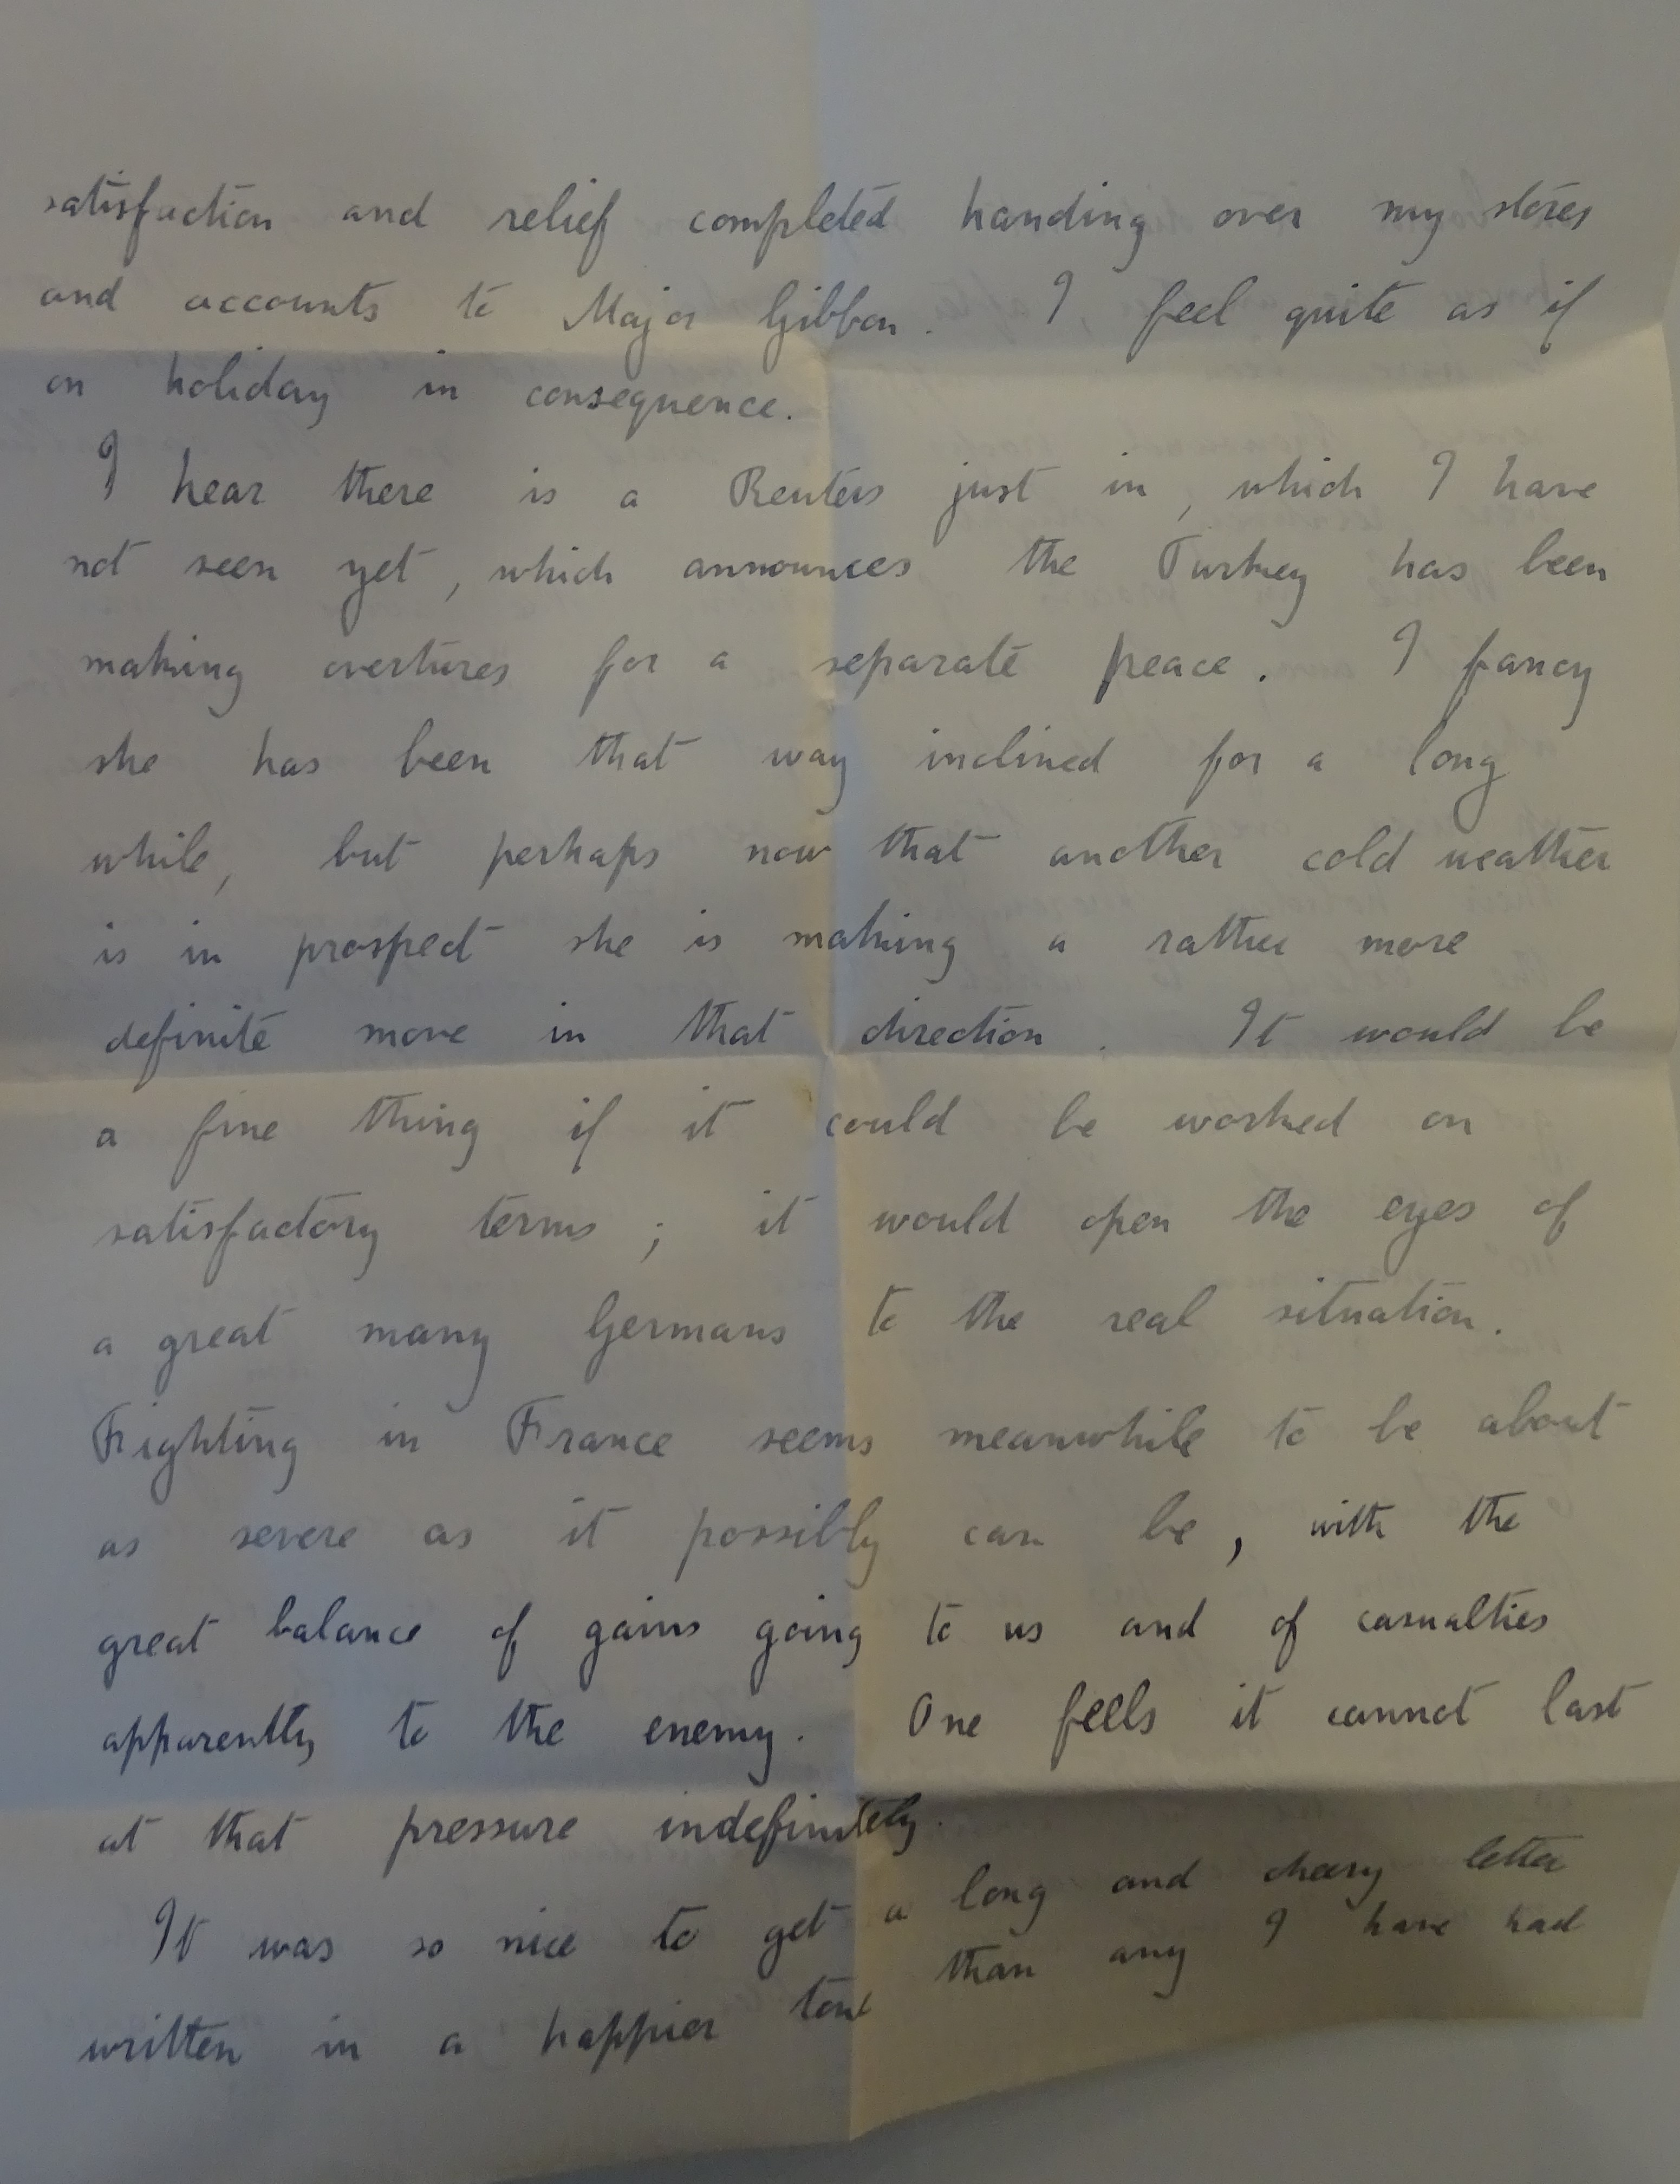 satisfaction and relief completed handing over my stores
and accounts to Major Gibbon. I feel quite as if
on holiday in consequence.
I hear there is a Reuters just in, which I have
not seen yet, which announces the Turkey has been
making overtures for a separate peace. I fancy
she has been that way inclined for a long
while, but perhaps now that another cold weather
is in prospect she is making a rather more
definite move in that direction. It would be
a fine thing if it could be worked on
satisfactory terms; it would open the eyes of
a great many Germans to the real situation.
Fighting in France seems meanwhile to be about
as severe as it possibly can be, with the
great balance of gains going to us and of casualties
apparently to the enemy. One feels it cannot last
at that pressure indefinitely.
It was so nice to get a long and cheery letter
written in a happier tone than any I have had